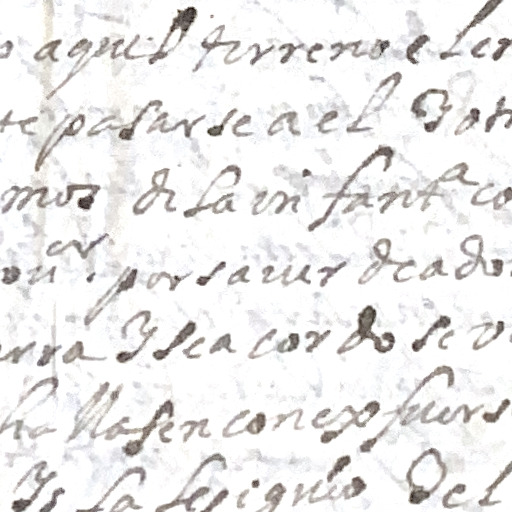 aquel terreno el en
te pasarse a el Y otr
mos de la infant.ª co
por saver de ado
rra Y se acordo se v
hallasen con exfuers
Y se le siguio del